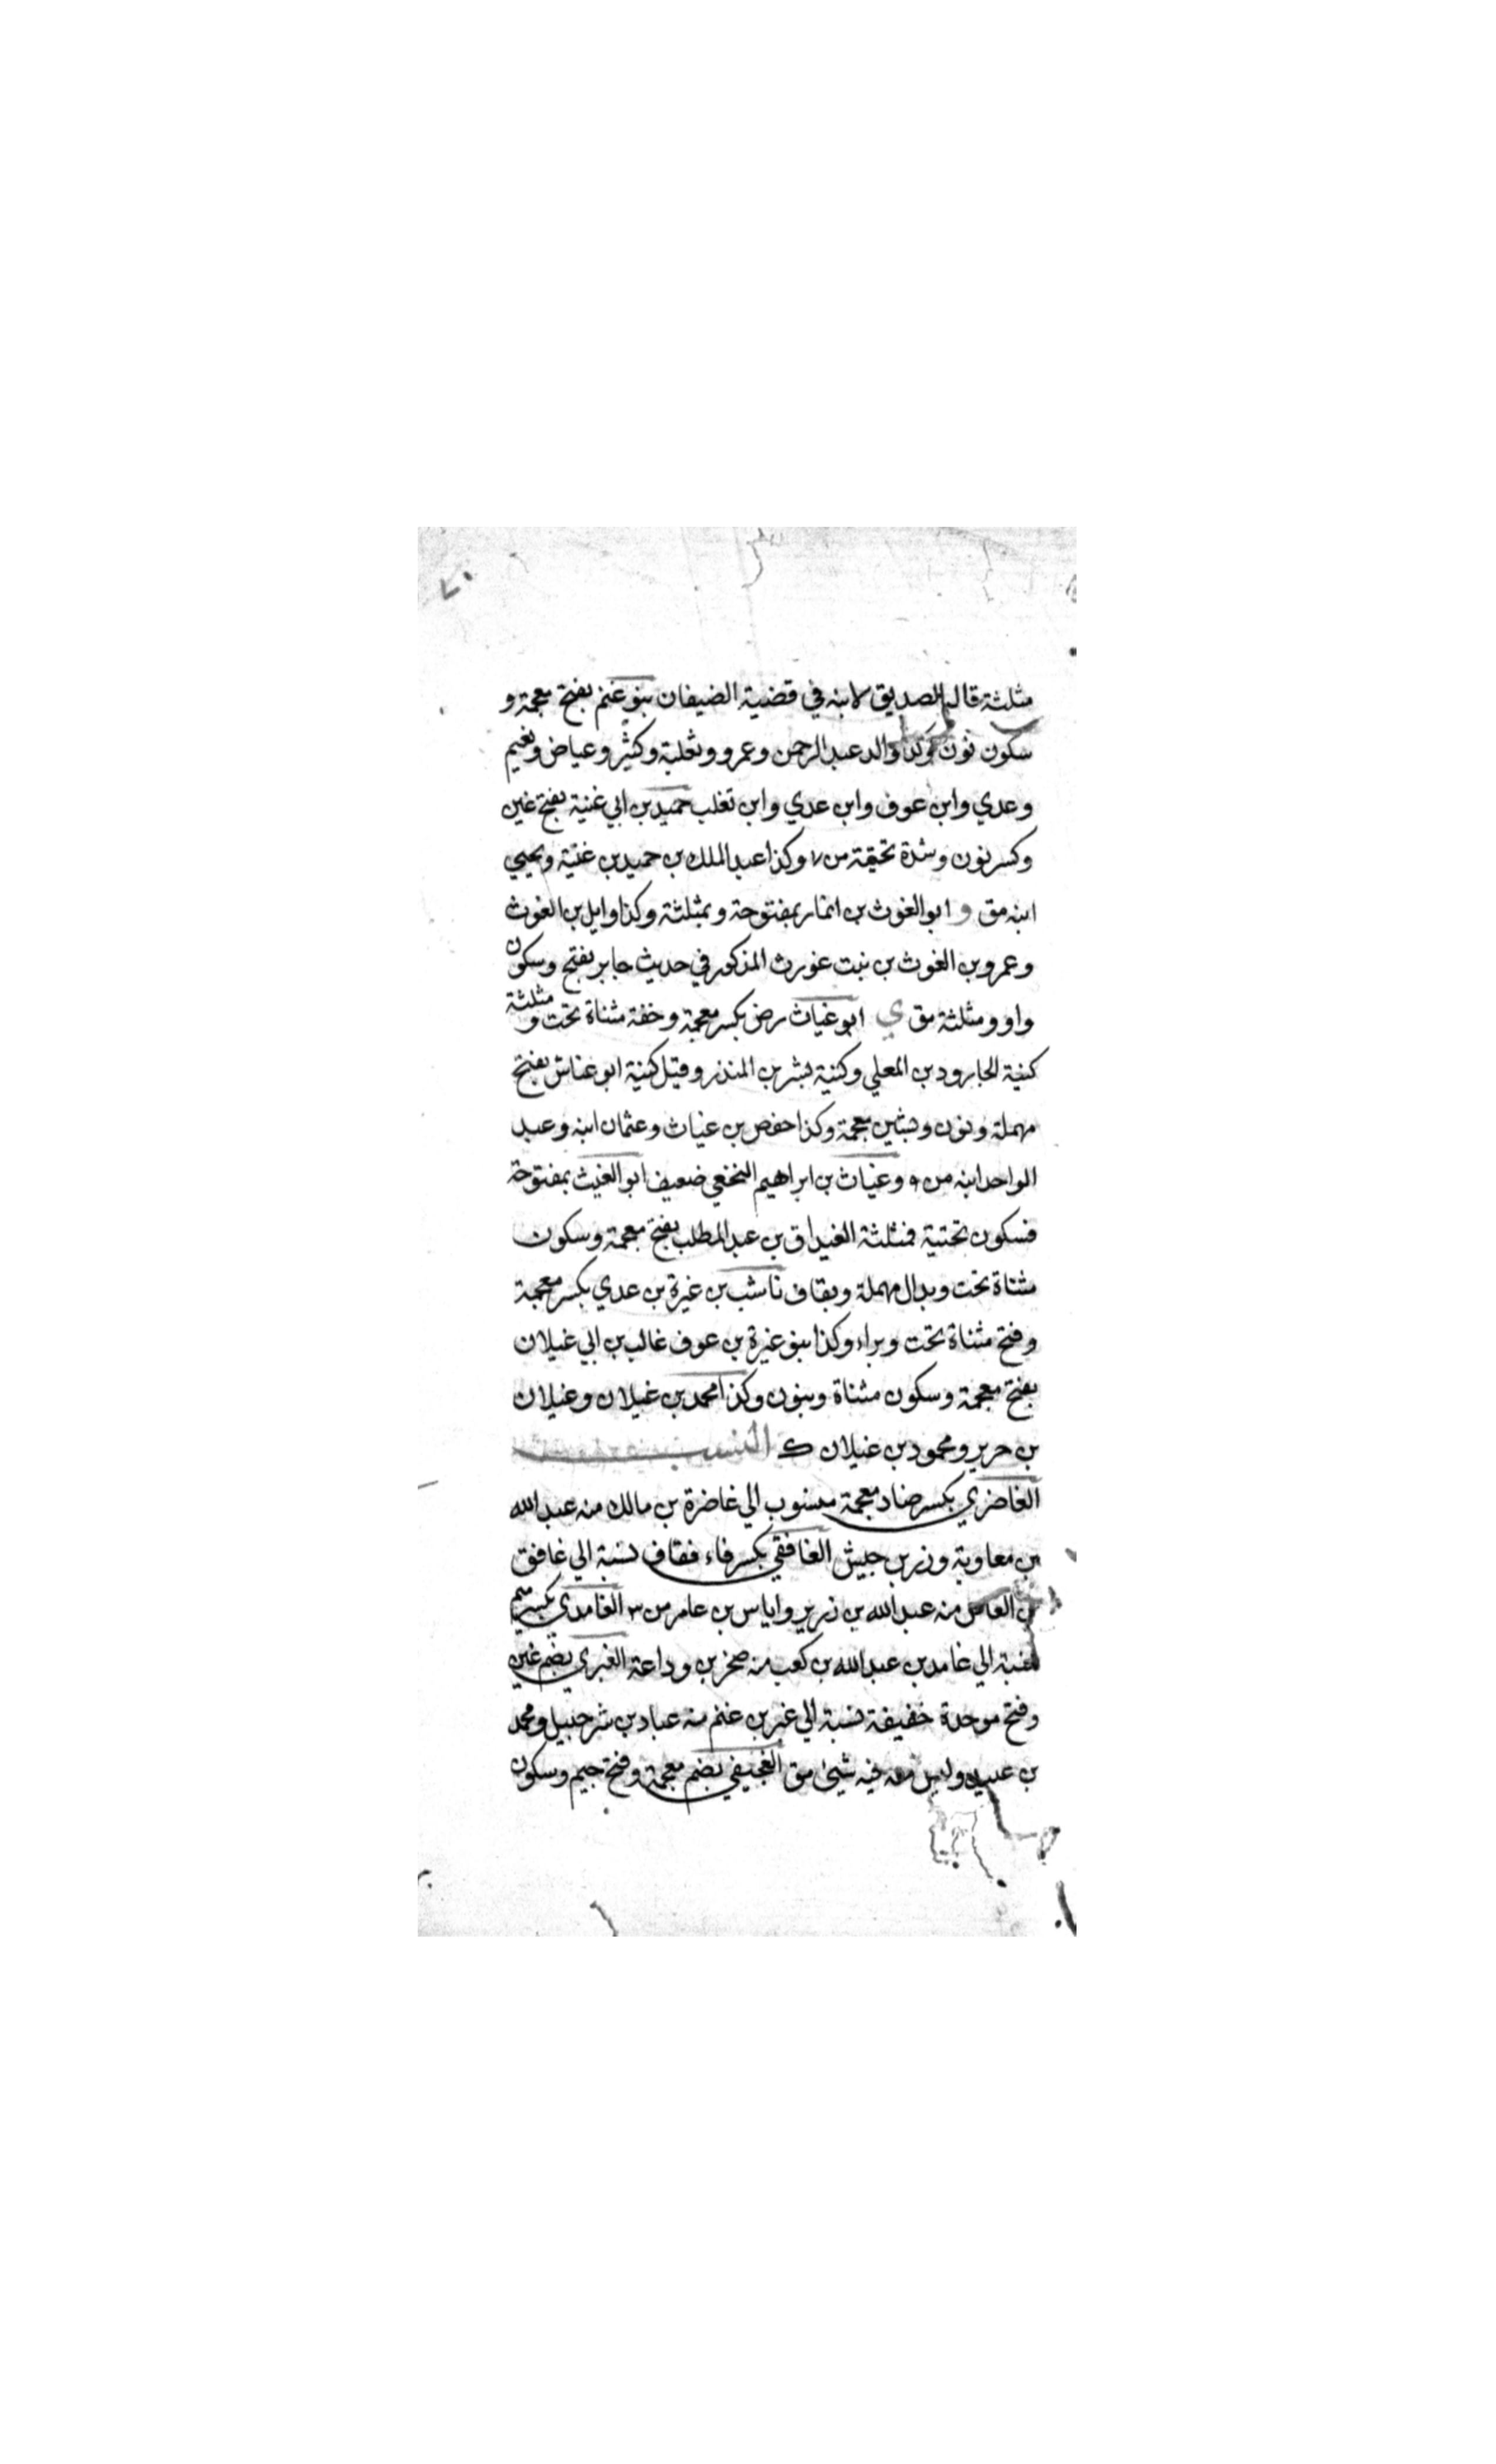 مثلثة قاله الصديق لابنه في قضية الضيفان بنو غنم بفتح معجمة و
سكون نون والد عبد الرحمن وعمرو وثعلبة وكثير وعياض ونعيم
وعدي وابن عوف وابن عدي وابن تغلب حميد بن ابي غنية بفتح غين
وكسر نون وشدة تحتية من ٧ وكذا عبد الملك بن حميد بن غنية ويحيي
ابنه مق و ابو الغوث بن انمار بمفتوحة وبمثلثة وكذا وايل بن الغوث
وعمرو بن الغوث بن نبت غورث المذكور في حديث جابر بفتح وسكون
واو ومثلثة مق ي ابو غياث رض بكسر معجمة وخفة مثناة تحت و مثلثة
كنية الجارود بن المعلي وكنية بشر بن المنذر وقيل كنية ابو عناش بفتح
مهملة ونون وبشين معجمة وكذا حفص بن غياث وعثمان ابنه وعبد
الواحد ابنه من ٩ وغياث بن ابراهيم النخعي ضعيف ابو الغيث بمفتوحة
فسكون تحتية فمثلثة الغيداق بن عبد المطلب بفتح معجمة وسكون
مثناة تحت وبدال مهملة وبقاف ناشب بن غيرة بن عدي بكسر معجمة
وفتح مثناة تحت وبراء وكذا بنو غيرة بن عوف غالب بن ابي غيلان
بفتح معجمة وسكون مثناة وبنون وكذا محمد بن غيلان وغيلان
بن حرير ومحمود بن غيلان ك النسب
الغاضري بكسر ضاد معجمة منسوب الي غاضرة بن مالك منه عبد الله
بن معاوية وزر بن حبيش الغافقي بكسر فاء فقاف نسبة الي غافق
بن العاص منه عبد الله بن زرير واياس بن عامر من ٣ الغامدي بكسر ميم
نسبة الي غامد بن عبد الله بن كعب منه صخر بن وداعة الغبري بضم غين
وفتح موحدة خفيفة نسبة الي غبر بن غنم منه عباد بن شرحبيل ومحمد
بن عبيد وليس منه فيه شيئ مق الغجيفي بضم معجمة وفتح جيم وسكون